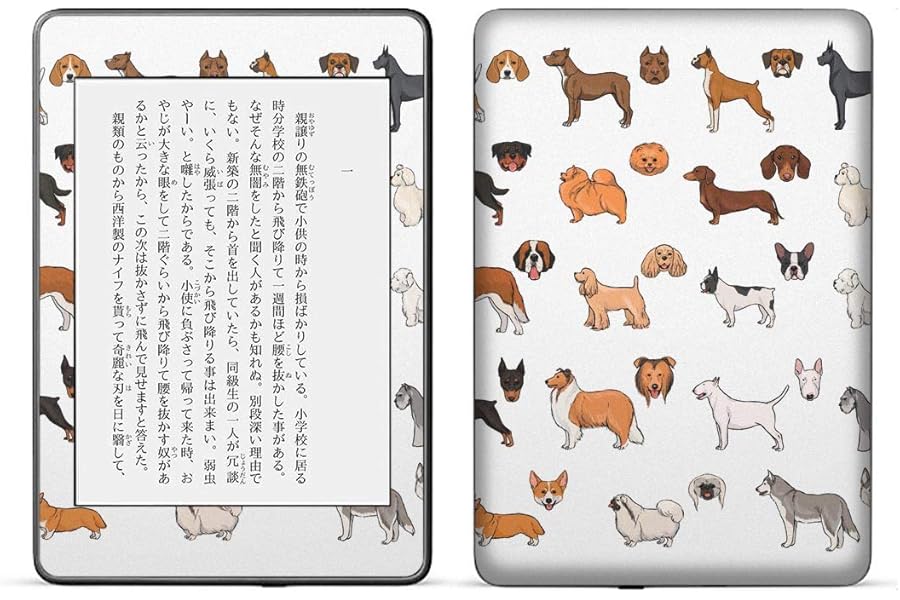 一
親譲りの無鉄砲で小供の時から損ばかりしている。小学校に居る
時分学校の二階から飛び降りて一週間ほど腰を抜かした事がある。
なぜそんな無闇をしたと聞く人があるかも知れぬ。別段深い理由で
もない。新築の二階から首を出していたら、同級生の一人が冗談
に、いくら威張っても、そこから飛び降りる事は出来まい。弱虫
やーい。と囃したからである。小使に負ぶさって帰って来た時、お
やじが大きな眼をして二階ぐらいから飛び降りて腰を抜かす奴があ
るかと云ったから、この次は抜かさずに飛んで見せますと答えた。
親類のものから西洋製のナイフを貰って奇麗な刃を日に翳して、